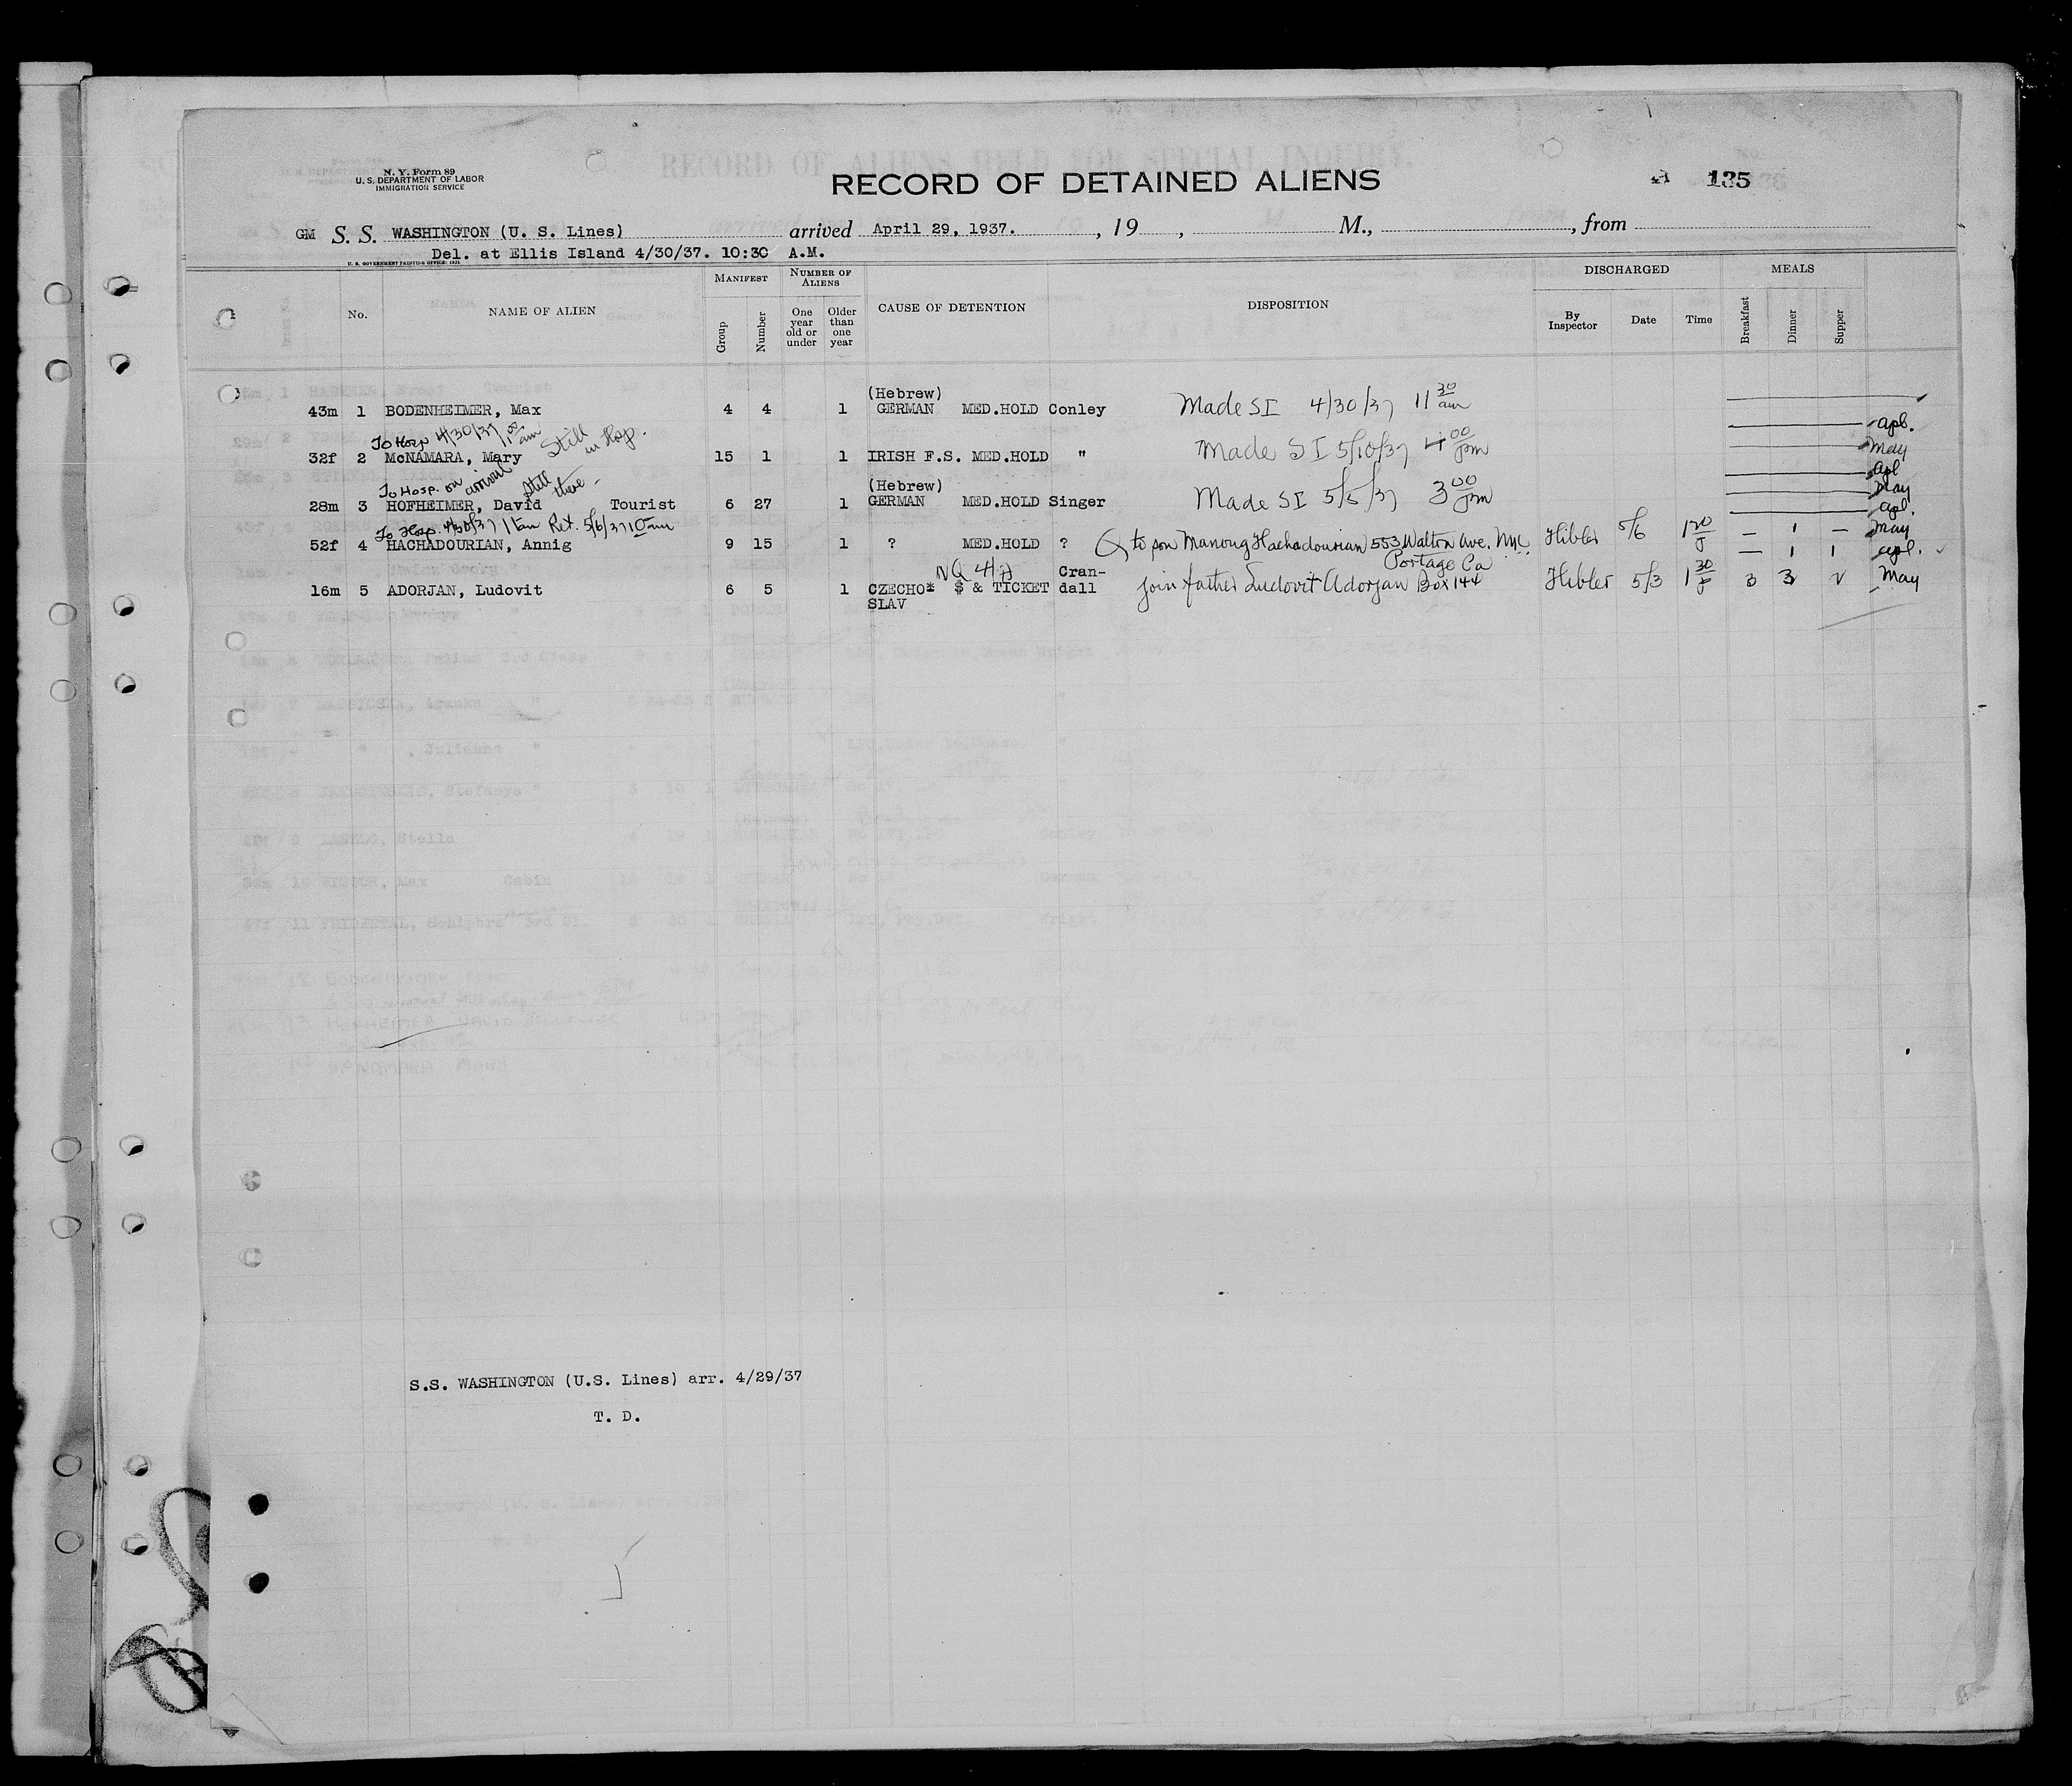 N. Y. Form 89
U. S. DEPARTMENT OF LABOR
IMMIGRATION SERVICE
RECORD OF DETAINED ALIENS
A 135
GM S. S. WASHINGTON (U. S. Lines) arrived April 29, 1937. , 19 , M., , from
Del. at Ellis Island 4/30/37. 10:30 A.M.
U. S. GOVERNMENT PRINTING OFFICE: 1931
No. NAME OF ALIEN MANIFEST Group Number NUMBER OF ALIENS One year old or under Older than one year CAUSE OF DETENTION DISPOSITION DISCHARGED By Inspector Date Time MEALS Breakfast Dinner Supper
(Hebrew)
43m 1 BODENHEIMER, Max 4 4 1 GERMAN MED.HOLD Conley Made SI 4/30/37 11 30 am
To Hosp 4/30/37 11 00 am Still in Hosp. apl.
32f 2 McNAMARA, Mary 15 1 1 IRISH F.S. MED.HOLD " Made SI 5/10/37 4 00 pm May
To Hosp. on arrival Still there - (Hebrew) apl
28m 3 HOFHEIMER, David Tourist 6 27 1 GERMAN MED.HOLD Singer Made SI 5/5/37 3 00 pm May
To Hosp. 4/30/37 11 am Ret. 5/6/37 10 am apl.
52f 4 HACHADOURIAN, Annig 9 15 1 ? MED.HOLD ? to son Manoug Hachadourian 553 Walton Ave. NYC Hibler 5/6 1 20 — 1 — May
Cran- Portage Pa — 1 1 apl.
16m 5 ADORJAN, Ludovit 6 5 1 CZECHO* $ & TICKET dall join father Ludovit Adorjan Box 144 Hibler 5/3 1 30 3 3 2 May
SLAV
S.S. WASHINGTON (U.S. Lines) arr. 4/29/37
T. D.